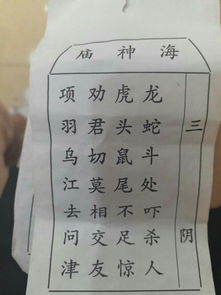 海神庙
三阴
龙蛇斗处吓杀人
虎头鼠尾不足惊
劝君切莫相交友
项羽乌江去问津